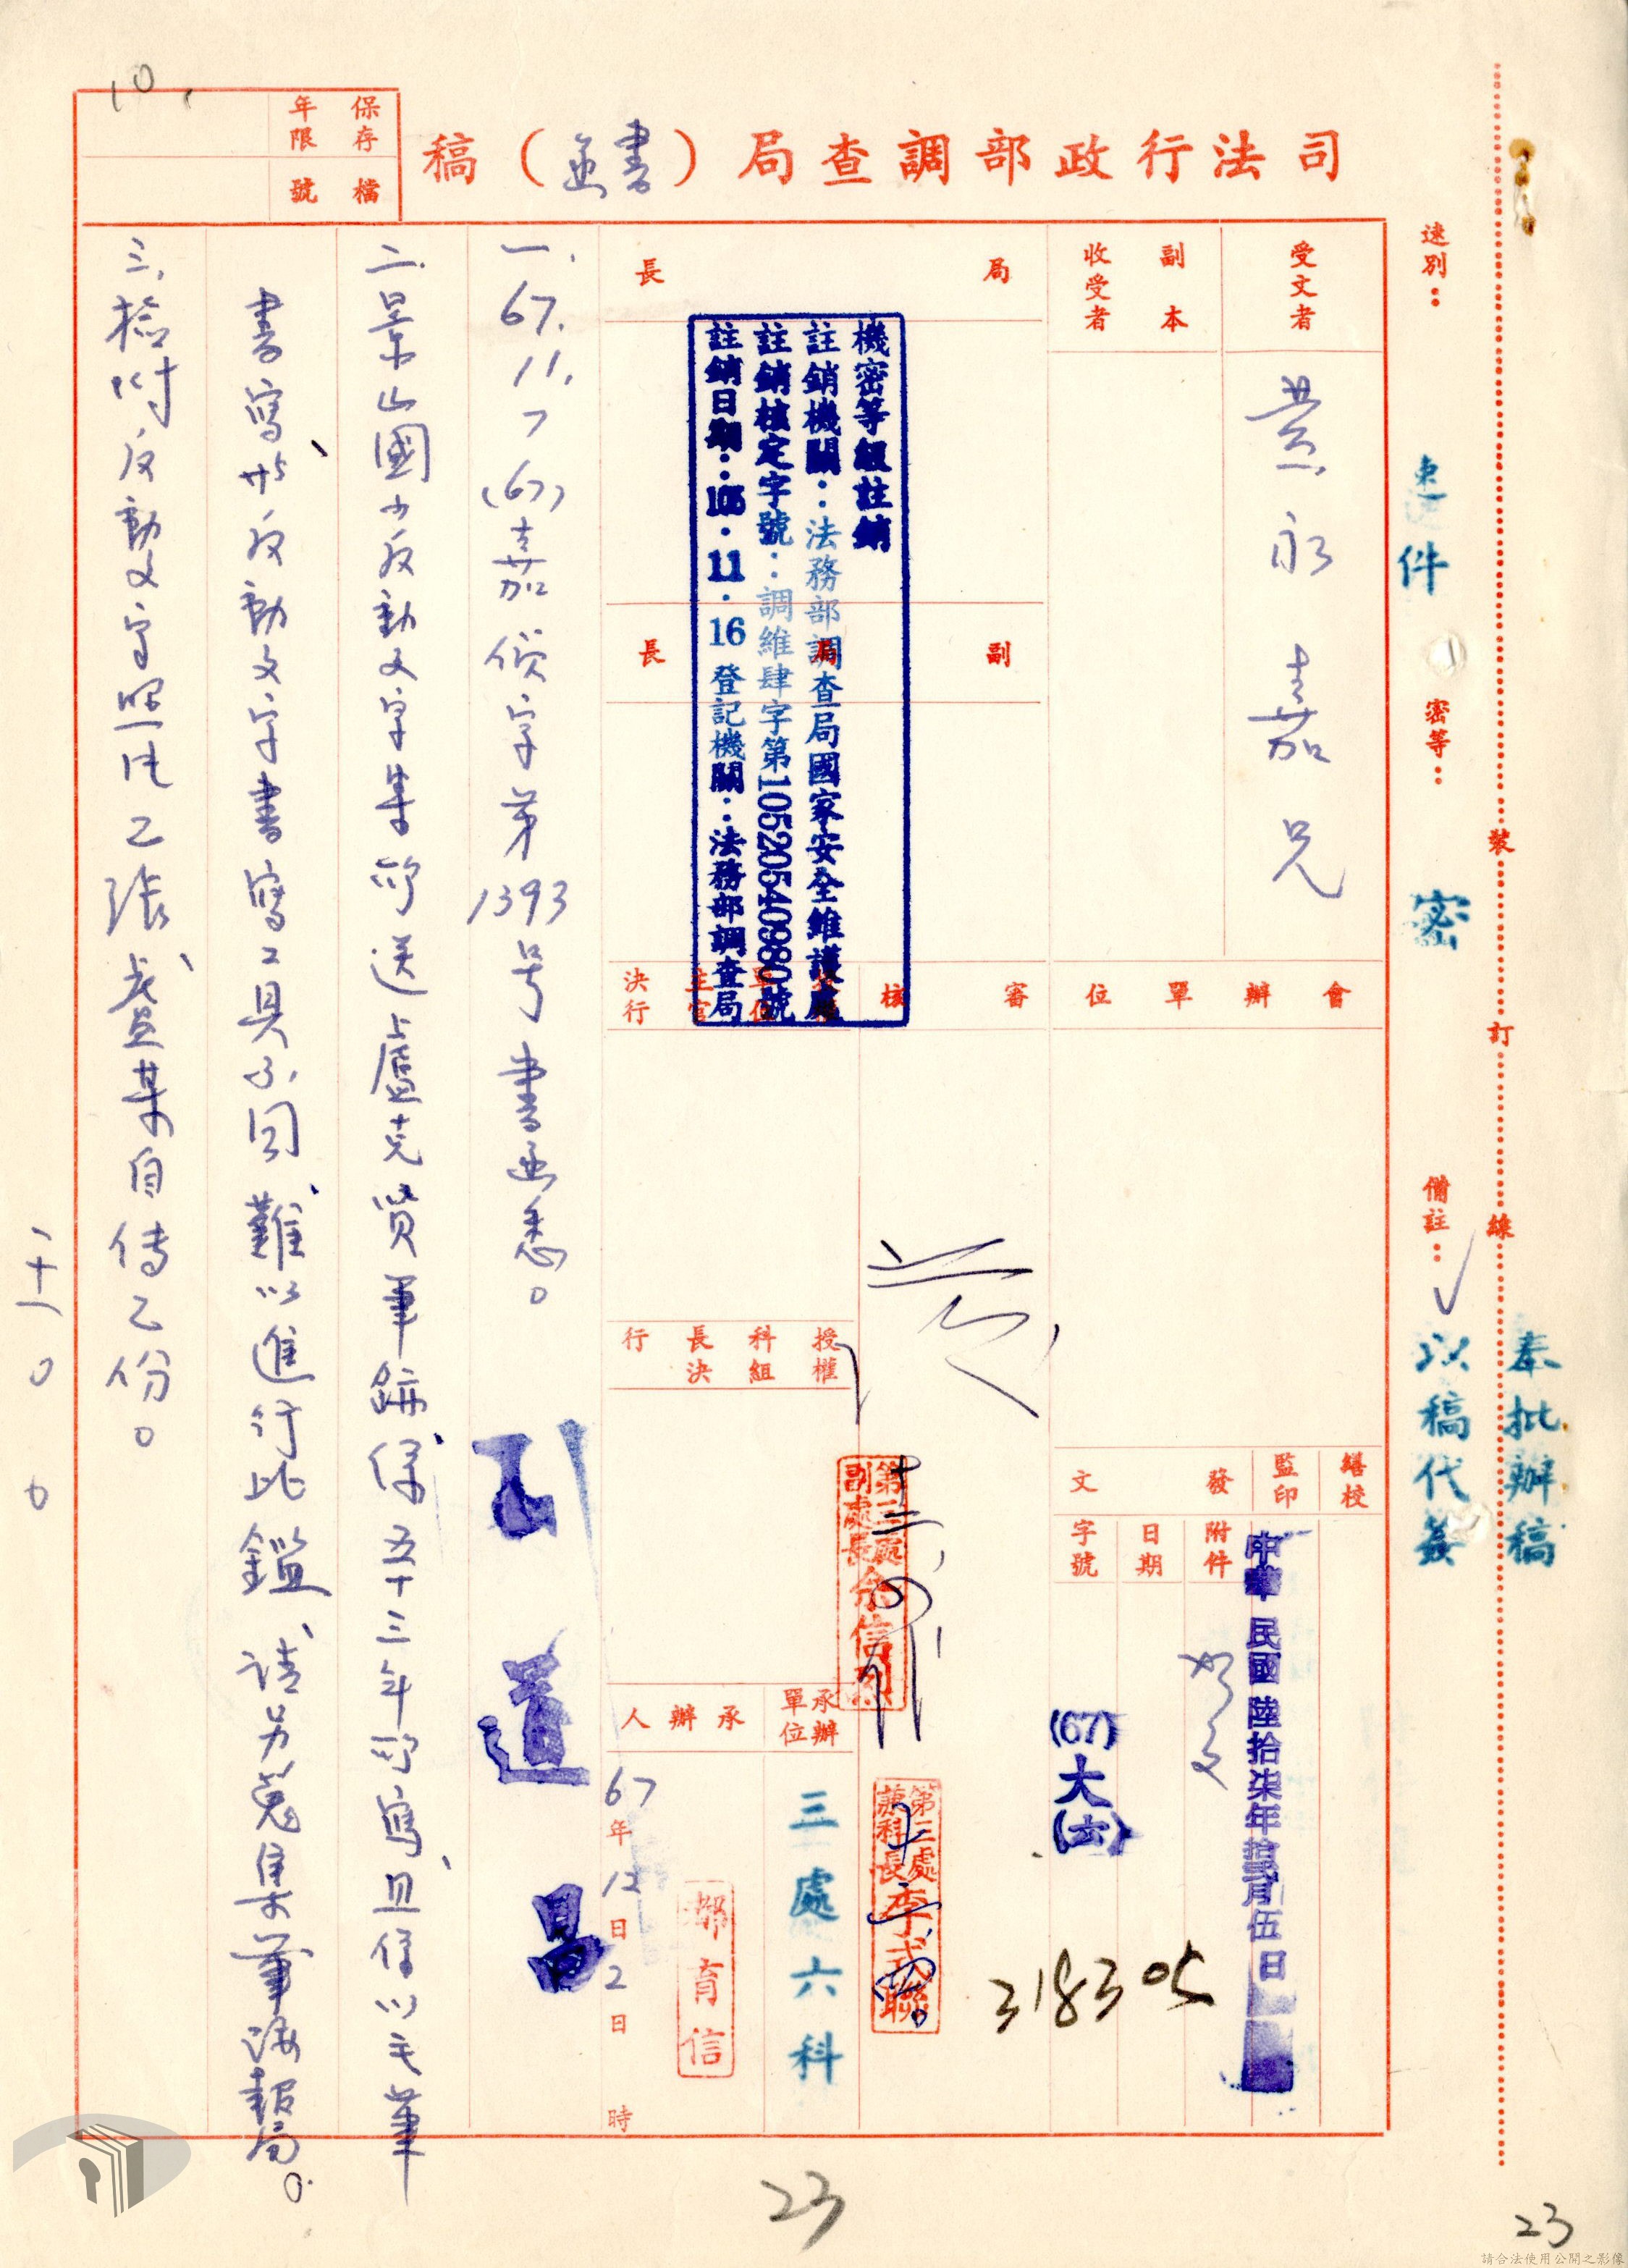 司法行政部調查局（書函）稿
保存年限
檔號
10.
速別：
速件
密等：
密
備註：
奉批辦稿
以稿代簽
裝
訂
線
受文者
黃永嘉兄
副本收受者
會辦單位
局長
副局長
審核
單位主官決行
授權科組長決行
機密等級註銷
註銷機關：法務部調查局國家安全維護處
註銷核定字號：調維肆字第10520540980號
註銷日期：105．11．16登記機關：法務部調查局
繕校
監印
發文
附件
如文
日期
中華民國陸拾柒年拾貳月伍日
字號
(67)大(六)
318305
第三處副處長
第三處
科長李式聯
承辦單位
三處六科
承辦人
鄭育信
67年12日2日時
一.67.11.7(67)嘉偵字第1393号書函悉。
二.景山國小反動文字案所送盧克贤筆跡，係五十三年所寫，且係以毛筆
書寫，与反動文字書寫工具不同，難以進行比鑑，請另蒐集筆跡報局。
三.檢附反動文字照片乙張，盧某自傳乙份。
道昌
23
23
請合法使用公開之影像